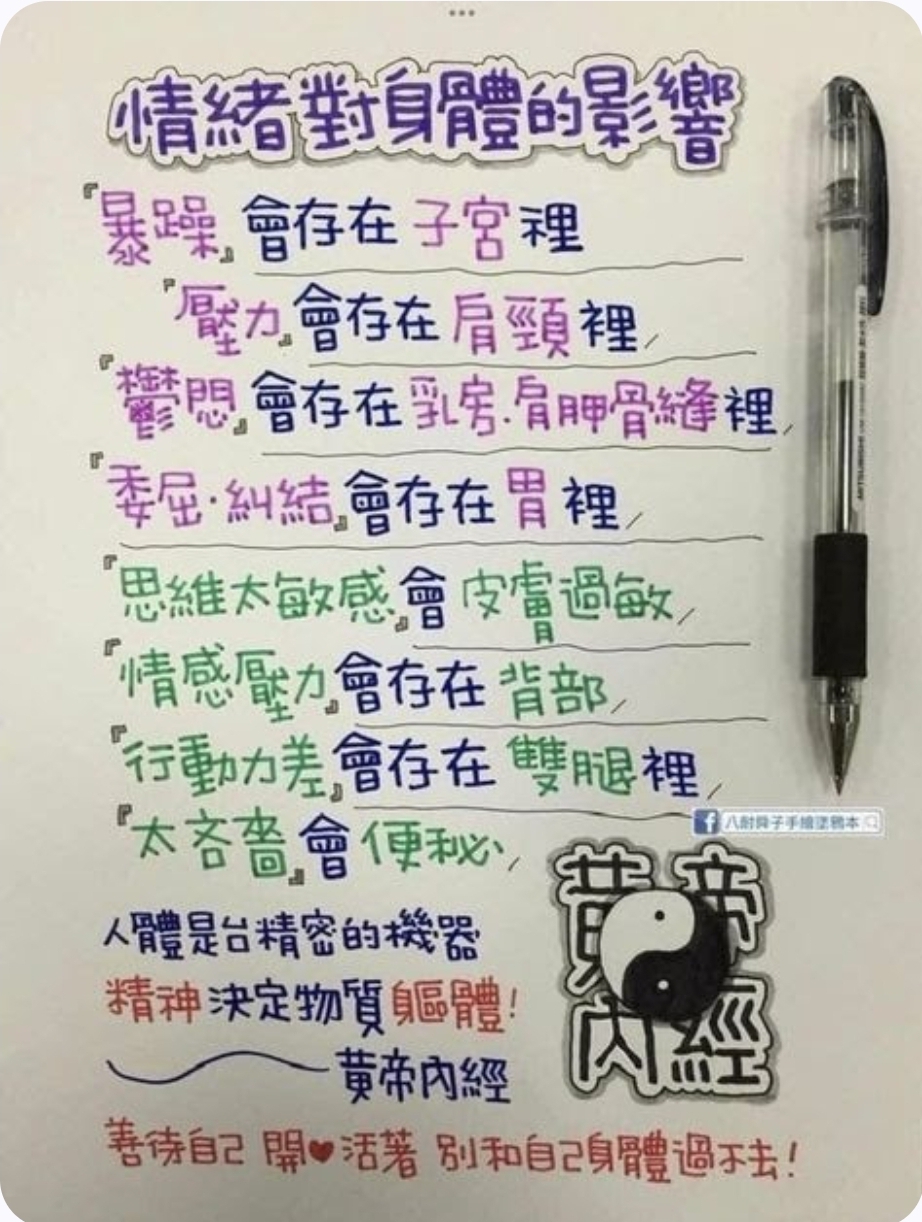 情緒對身體的影響
『暴躁』會存在子宮裡
『壓力』會存在肩頸裡,
『鬱悶』會存在乳房.肩胛骨縫裡,
『委屈·糾結』會存在胃裡,
『思維太敏感』會皮膚過敏,
『情感壓力』會存在背部,
『行動力差』會存在雙腿裡,
『太吝嗇』會便秘,
八耐舜子手繪塗鴉本
人體是台精密的機器
精神決定物質軀體!
黃帝內經
黃帝內經
善待自己 開♥活著 別和自己身體過不去!